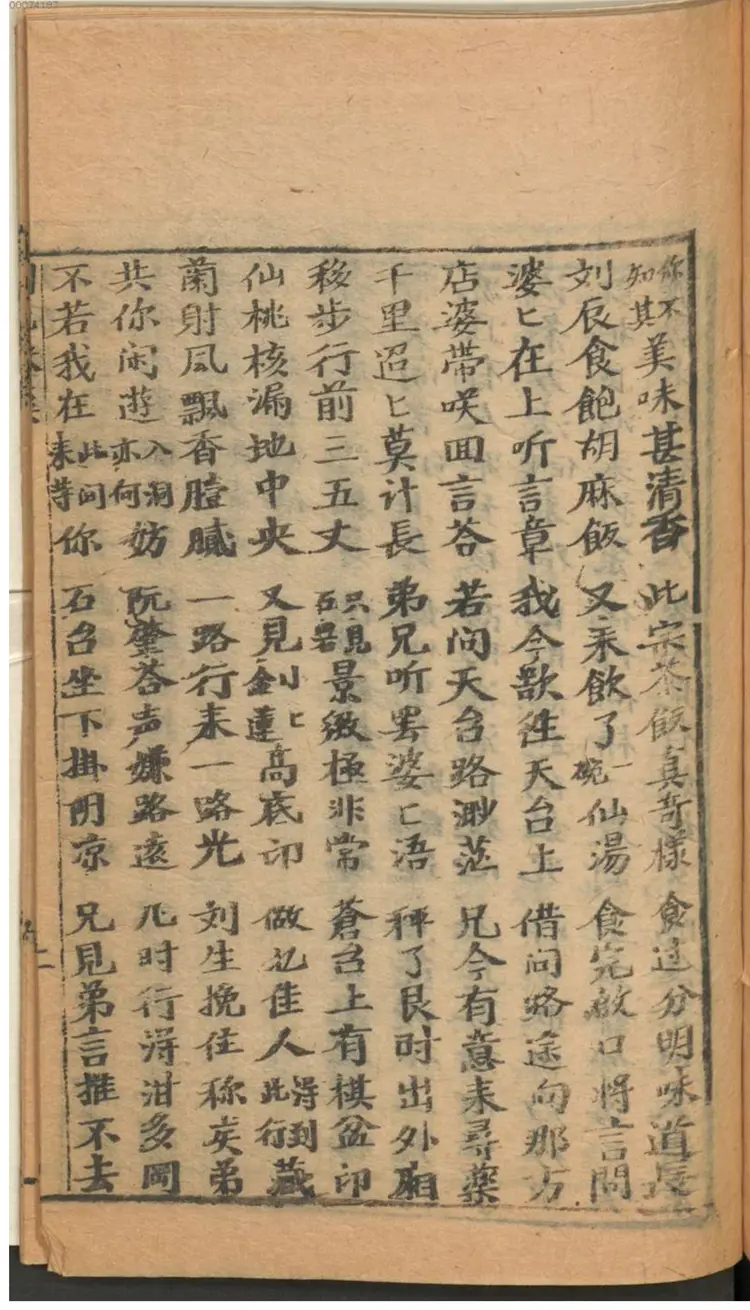 你不知其美味甚清香 此宗茶飯真奇樣 食过分明味道長
刘辰食飽胡麻飯 又来飲了一碗仙湯 食完啟口将言問
婆匕在上听言章 我今欲徃天台上 借问路途向那方
店婆帶咲囬言荅 若问天台路渺茫 兄今有意来尋藥
千里迢匕莫计長 弟兄听罢婆匕语 秤了艮时出外廂
移步行前三五丈 只見石岩景緻極非常 蒼台上有棋盆印
仙桃核漏地中央 又見金蓮匕高底印 做乜佳人得到此行藏
蘭射风飄香膻膩 一路行来一路光 刘生挽住称矣弟
共你闲遊入洞亦何妨 阮肇荅声嫌路遠 几时行得泔多岡
不若我在此间来等你 石台坐下掛阴凉 兄見弟言推不去
二
00074197